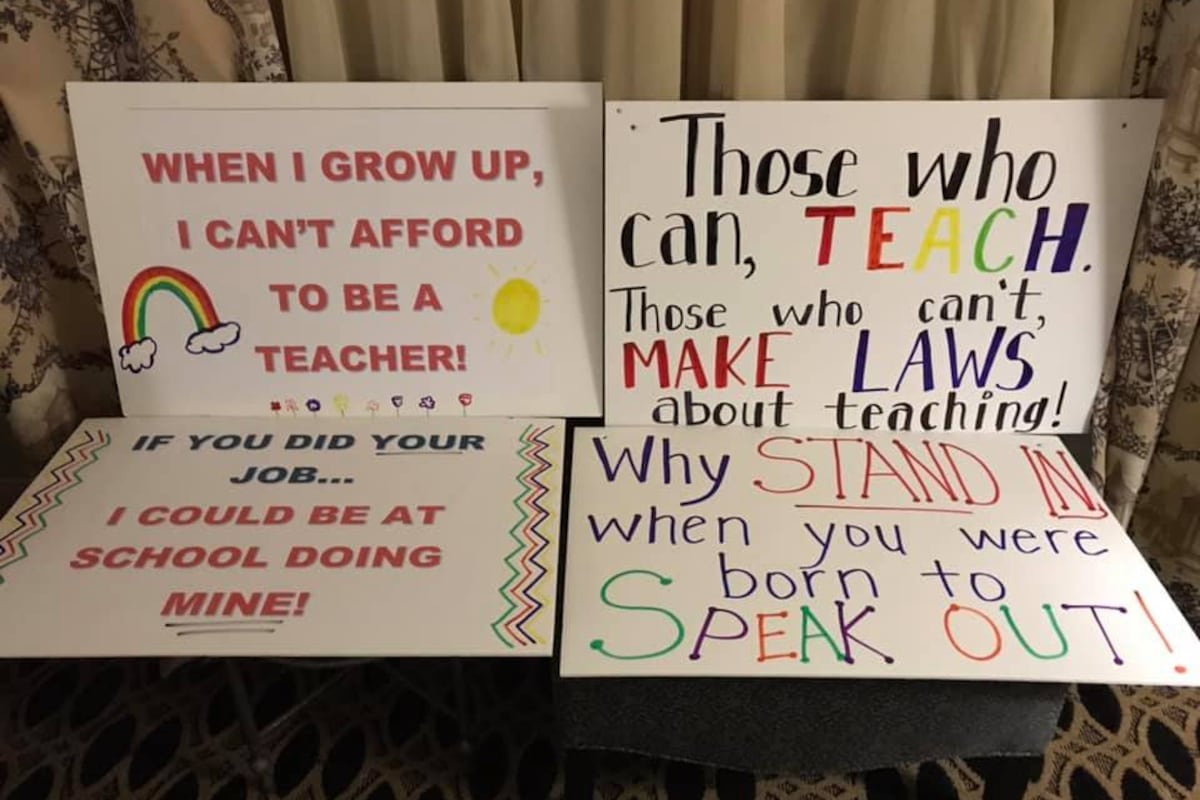 WHEN I GROW UP,
I CAN'T AFFORD
TO BE A
TEACHER!
Those who
can, TEACH.
Those who can't,
MAKE LAWS
about teaching!
IF YOU DID YOUR
JOB...
I COULD BE AT
SCHOOL DOING
MINE!
Why STAND IN,
when you were
born to
SPEAK OUT!